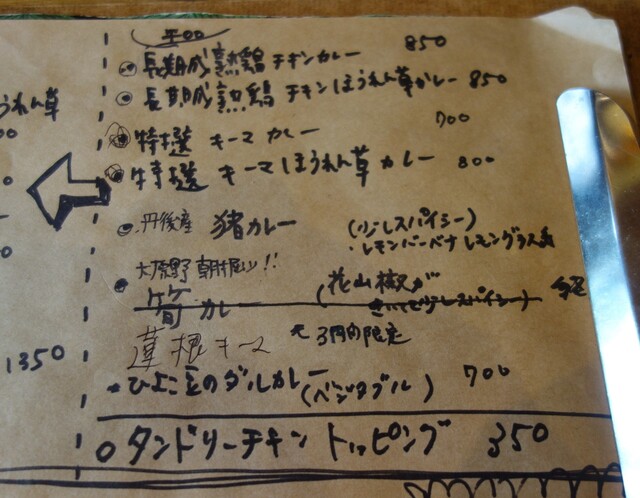 長期成熟鶏 チキンカレー 850
長期成熟鶏 チキンほうれん草カレー 850
特選 キーマカレー 700
特選 キーマほうれん草カレー 800
丹後産 猪カレー (少しスパイシー)
・レモンバーベナ レモングラス
大原野 朝掘り!!
筍カレー (花山椒が
きいてて少しスパイシー)
蓮根キーマ
ひよこ豆のダルカレー (ベジタブル) 700
タンドリーチキン トッピング 350
うれん草
1350